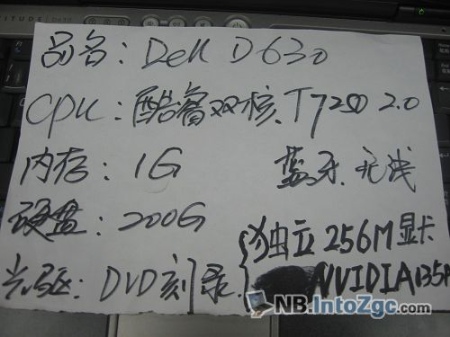 品名: Dell D630
CPU: 酷睿双核、T7250 2.0
内存: 1G 蓝牙、无线
硬盘: 200G
独立256M显卡
光驱: DVD刻录
NVIDIA135M
NB.IntoZgc.com